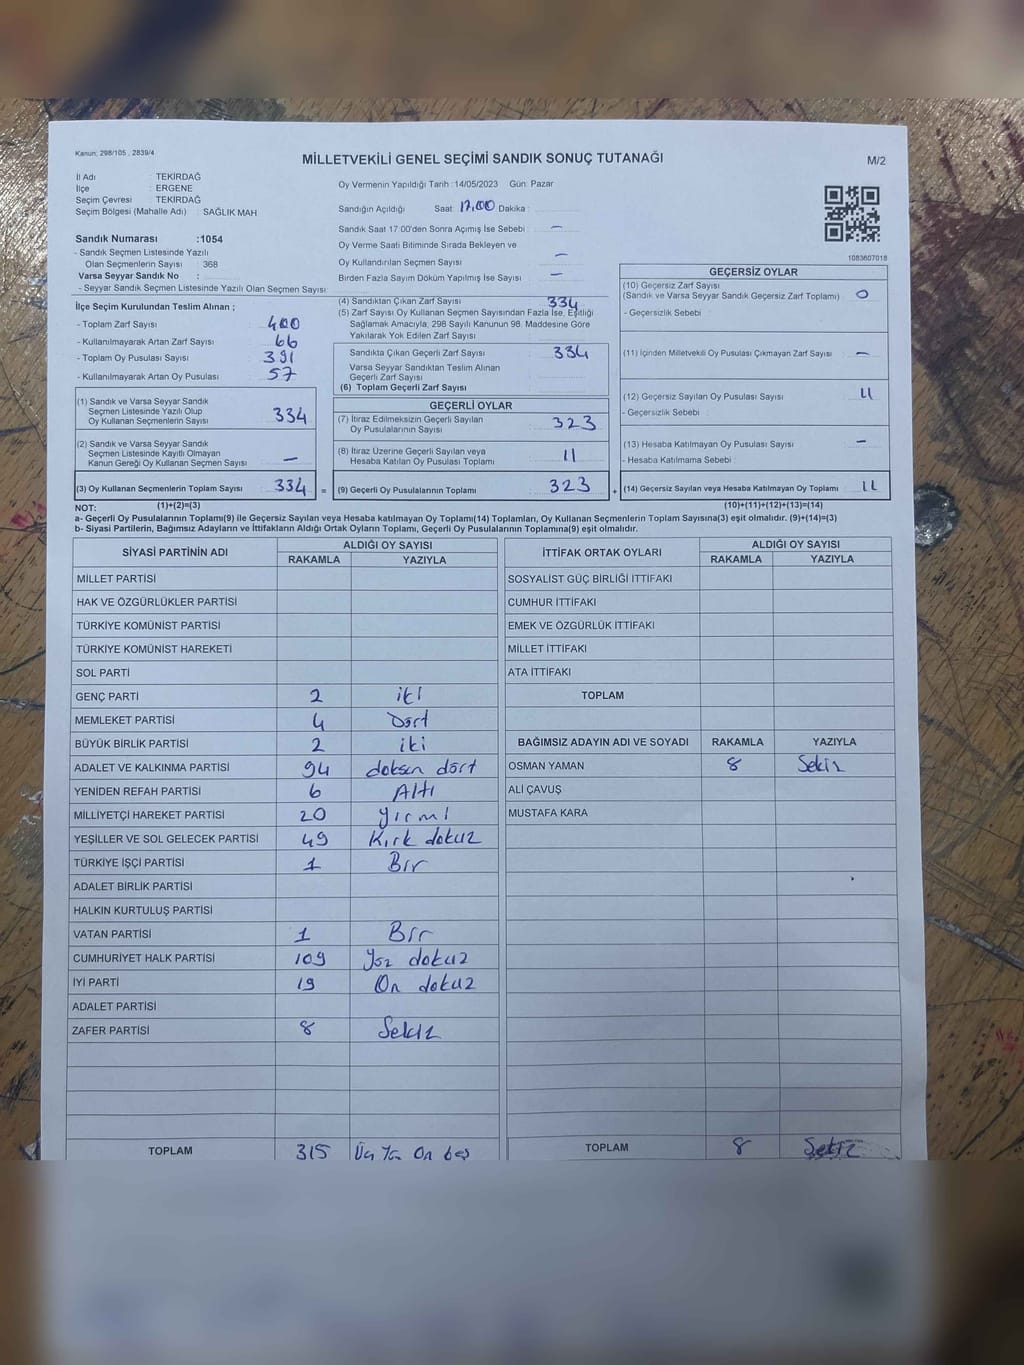 Kanun: 298/105 , 2839/4
MİLLETVEKİLİ GENEL SEÇİMİ SANDIK SONUÇ TUTANAĞI
M/2
İl Adı : TEKİRDAĞ
İlçe : ERGENE
Seçim Çevresi : TEKİRDAĞ
Seçim Bölgesi (Mahalle Adı) : SAĞLIK MAH
Sandık Numarası :1054
- Sandık Seçmen Listesinde Yazılı
Olan Seçmenlerin Sayısı : 368
Varsa Seyyar Sandık No :
- Seyyar Sandık Seçmen Listesinde Yazılı Olan Seçmen Sayısı:
Oy Vermenin Yapıldığı Tarih :14/05/2023 Gün: Pazar
Sandığın Açıldığı Saat: 17.00 Dakika :
Sandık Saat 17:00'den Sonra Açımış İse Sebebi : —
Oy Verme Saati Bitiminde Sırada Bekleyen ve
Oy Kullandırılan Seçmen Sayısı —
Birden Fazla Sayım Döküm Yapılmış İse Sayısı —
1083607018
İlçe Seçim Kurulundan Teslim Alınan ;
- Toplam Zarf Sayısı 400
- Kullanılmayarak Artan Zarf Sayısı 66
- Toplam Oy Pusulası Sayısı 391
- Kullanılmayarak Artan Oy Pusulası 57
(1) Sandık ve Varsa Seyyar Sandık
Seçmen Listesinde Yazılı Olup
Oy Kullanan Seçmenlerin Sayısı 334
(2) Sandık ve Varsa Seyyar Sandık
Seçmen Listesinde Kayıtlı Olmayan
Kanun Gereği Oy Kullanan Seçmen Sayısı —
(3) Oy Kullanan Seçmenlerin Toplam Sayısı 334 =
(1)+(2)=(3)
(4) Sandıktan Çıkan Zarf Sayısı 334
(5) Zarf Sayısı Oy Kullanan Seçmen Sayısından Fazla İse, Eşitliği
Sağlamak Amacıyla, 298 Sayılı Kanunun 98. Maddesine Göre
Yakılarak Yok Edilen Zarf Sayısı
Sandıkta Çıkan Geçerli Zarf Sayısı 334
Varsa Seyyar Sandıktan Teslim Alınan
Geçerli Zarf Sayısı
(6) Toplam Geçerli Zarf Sayısı
GEÇERLİ OYLAR
(7) İtiraz Edilmeksizin Geçerli Sayılan
Oy Pusulalarının Sayısı 323
(8) İtiraz Üzerine Geçerli Sayılan veya
Hesaba Katılan Oy Pusulası Toplamı 11
(9) Geçerli Oy Pusulalarının Toplamı 323 +
GEÇERSİZ OYLAR
(10) Geçersiz Zarf Sayısı
(Sandık ve Varsa Seyyar Sandık Geçersiz Zarf Toplamı) 0
- Geçersizlik Sebebi :
(11) İçinden Milletvekili Oy Pusulası Çıkmayan Zarf Sayısı —
(12) Geçersiz Sayılan Oy Pusulası Sayısı 11
- Geçersizlik Sebebi :
(13) Hesaba Katılmayan Oy Pusulası Sayısı —
- Hesaba Katılmama Sebebi :
(14) Geçersiz Sayılan veya Hesaba Katılmayan Oy Toplamı 11
(10)+(11)+(12)+(13)=(14)
NOT:
a- Geçerli Oy Pusulalarının Toplamı(9) ile Geçersiz Sayılan veya Hesaba katılmayan Oy Toplamı(14) Toplamları, Oy Kullanan Seçmenlerin Toplam Sayısına(3) eşit olmalıdır. (9)+(14)=(3)
b- Siyasi Partilerin, Bağımsız Adayların ve İttifakların Aldığı Ortak Oyların Toplamı, Geçerli Oy Pusulalarının Toplamına(9) eşit olmalıdır.
SİYASİ PARTİNİN ADI ALDIĞI OY SAYISI
RAKAMLA YAZIYLA
MİLLET PARTİSİ
HAK VE ÖZGÜRLÜKLER PARTİSİ
TÜRKİYE KOMÜNİST PARTİSİ
TÜRKİYE KOMÜNİST HAREKETİ
SOL PARTİ
GENÇ PARTİ 2 iki
MEMLEKET PARTİSİ 4 Dört
BÜYÜK BİRLİK PARTİSİ 2 iki
ADALET VE KALKINMA PARTİSİ 94 doksan dört
YENİDEN REFAH PARTİSİ 6 Altı
MİLLİYETÇİ HAREKET PARTİSİ 20 yirmi
YEŞİLLER VE SOL GELECEK PARTİSİ 49 Kırk dokuz
TÜRKİYE İŞÇİ PARTİSİ 1 Bir
ADALET BİRLİK PARTİSİ
HALKIN KURTULUŞ PARTİSİ
VATAN PARTİSİ 1 Bir
CUMHURİYET HALK PARTİSİ 109 Yüz dokuz
İYİ PARTİ 19 On dokuz
ADALET PARTİSİ
ZAFER PARTİSİ 8 Sekiz
TOPLAM 315 Üç Yüz On beş
İTTİFAK ORTAK OYLARI ALDIĞI OY SAYISI
RAKAMLA YAZIYLA
SOSYALİST GÜÇ BİRLİĞİ İTTİFAKI
CUMHUR İTTİFAKI
EMEK VE ÖZGÜRLÜK İTTİFAKI
MİLLET İTTİFAKI
ATA İTTİFAKI
TOPLAM
BAĞIMSIZ ADAYIN ADI VE SOYADI RAKAMLA YAZIYLA
OSMAN YAMAN 8 Sekiz
ALİ ÇAVUŞ
MUSTAFA KARA
TOPLAM 8 Sekiz